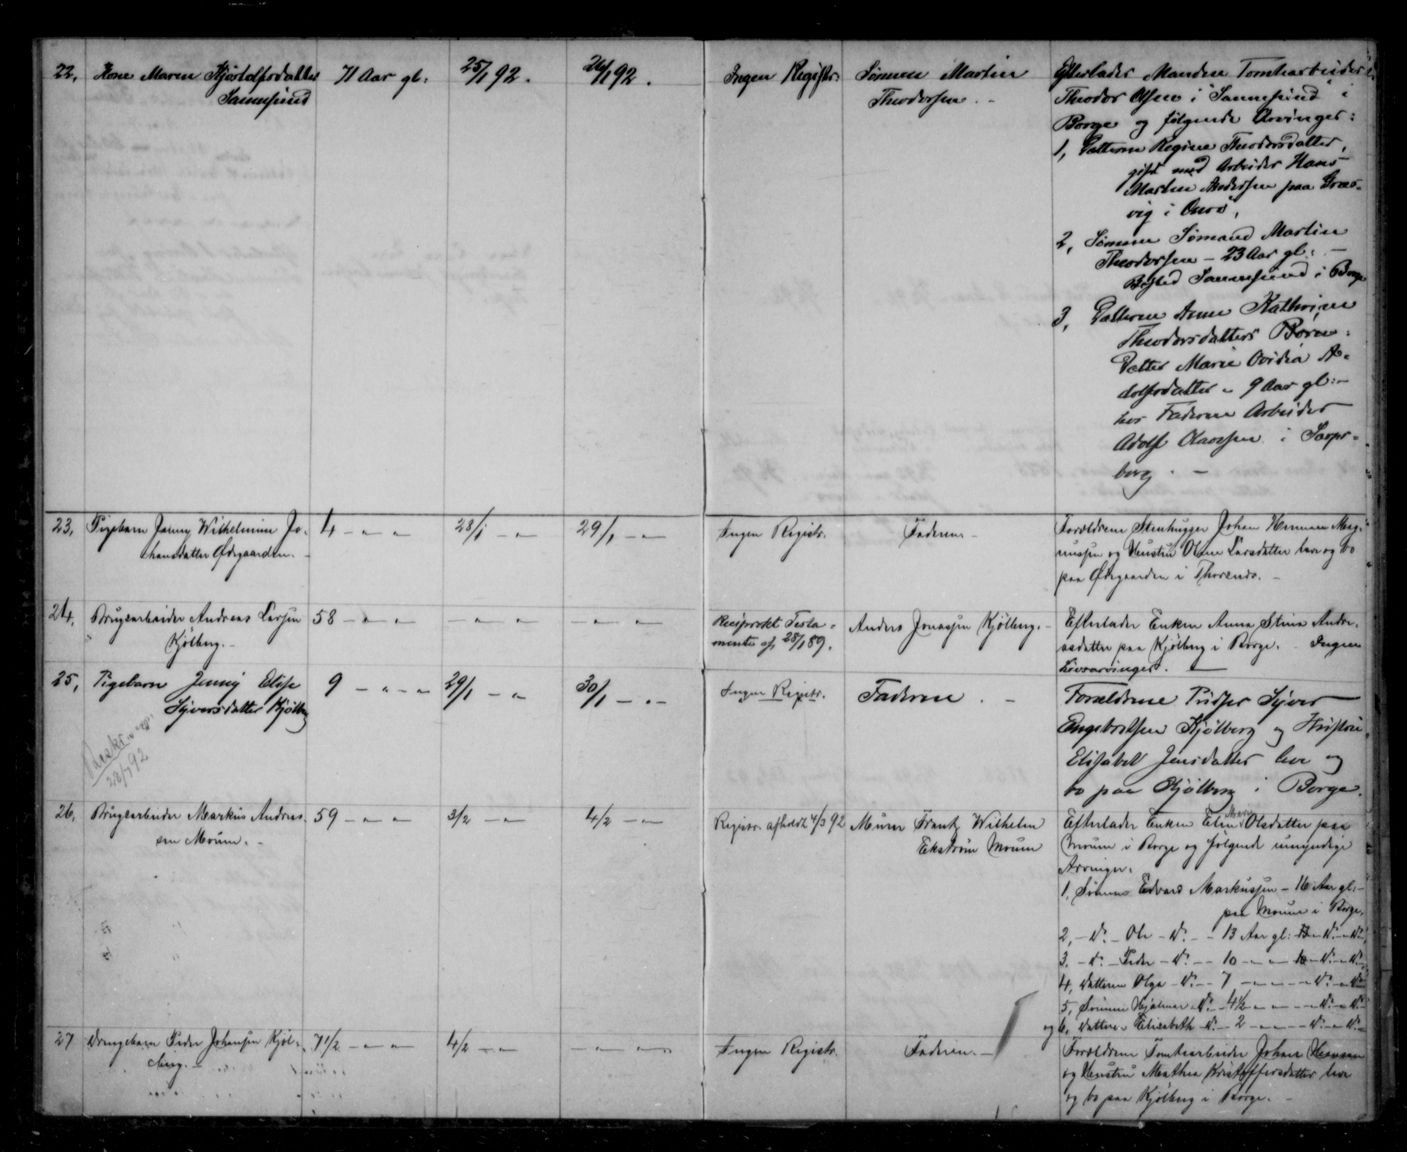 22, Kone Maren Kjöstolfsdatter
Sannesund
71 Aar gl.
25/1 92.
26/1 92.
Ingen Registr.
Sønnen Martin
Theodorsen. -
Efterlader Manden Tomtearbeider
Theodor Olsen i Sannesund i
Borge og følgende Arvinger:
1, Datteren Regine Theodorsdatter,
gift med Arbeider Hans
Martin Andersen paa Græs-
vig i Onsø,
2, Sønnen Sømand Martin
Theodorsen - 23 Aar gl: -
Bosted Sannesund i Borge
3, Datteren Anne Kathrine
Theodorsdatters Børn:
Datter Marie Ovidia A-
dolfsdatter - 9 Aar gl: -
hos Faderen Arbeider
Adolf Olavesen i Sarps-
borg. -
23, Pigebarn Jenny Wilhelmine Jo-
hansdatter Ødegaarden. -
14 - " - "
28/1 - "
29/1 - "
Ingen Registr.
Faderen. -
Forældrene Stenhugger Johan Herman Mag-
nussen og Hustru Oline Larsdatter leve og bo
paa Ødegaarden i Thorsnes. -
24, Brugsarbeider Andreas Larsen
Kjølberg. -
58 - " - "
- " - "
- " - "
Reciprokt Testa-
mente af 28/1 89.
Anders Jonassen Kjølberg. -
Efterlader Enken Anna Stina Andre-
asdatter paa Kjølberg i Borge. - Ingen
Livsarvinger. -
25, Pigebarn Jenny Elise
Syversdatter Kjølberg
9 - " - "
29/1 - "
30/1 - " -
Ingen Registr.
Faderen. -
Forældrene Pudser Syver
Engebretsen Kjølberg og Hustru
Elisabet Jensdatter leve og
bo paa Kjølberg i Borge.
28/7 92
26, Brugsarbeider Markus Andreas-
sen Moum. -
59 - " - "
3/2 - "
4/2 - "
Registr. afholdt 4/3 92
Murer Frantz Wilhelm
Ekstrøm Moum
Efterlader Enken Elin Marie Olsdatter paa
Moum i Borge og følgende umyndige
Arvinger.
1, Sønnen Edvard Markussen - 16 Aar gl: -
paa Moum i Borge,
2, - Do - Ole - Do - - 13 Aar gl: - Do - Do
3. - Do - Peder - Do - - 10 - " - " - Do - Do
4, Datteren Olga - Do - - 7 - " - " - Do - Do
5, Sønnen Hjalmar - Do - 4 1/2 - " - " - Do - Do
og 6, Datteren Elisabeth - Do - 2 - " - " - Do - Do
27 Drengebarn Peder Johansen Kjøl-
berg. -
7 1/2 - " - "
4/2 - "
- " - "
Ingen Registr.
Faderen. -
Forældrene Tomtearbeider Johan Hansen
og Hustru Mathea Kristoffersdatter leve
og bo paa Kjølberg i Borge. -